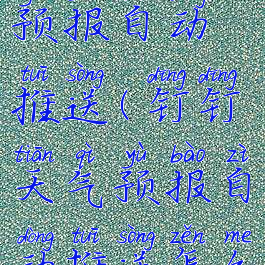 预报自动
tuī sòng dīng dīng
推送(钉钉
tiān qì yù bào zì
天气预报自
dòng tuī sòng zěn me
动推送怎么